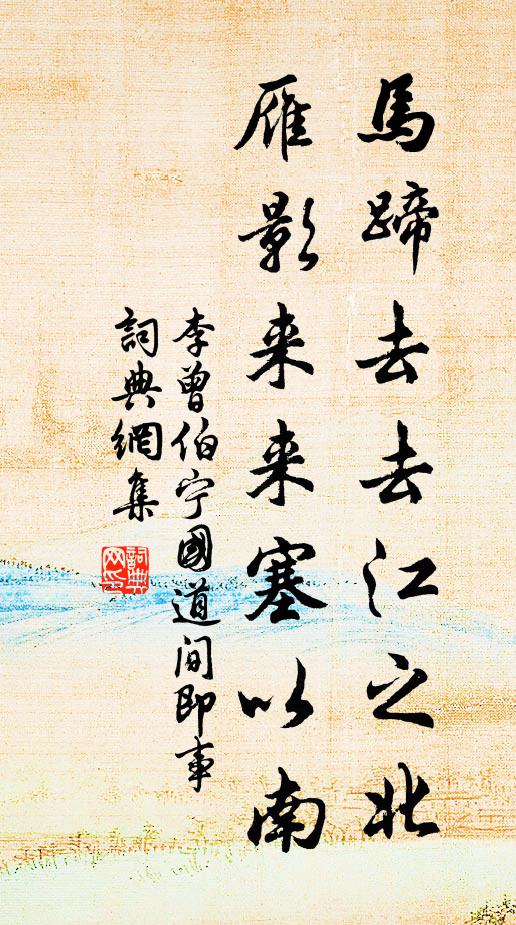 馬蹄去去江之北
雁影来来塞以南
李曾伯宁國道间即事
詞典網集
詞典网印